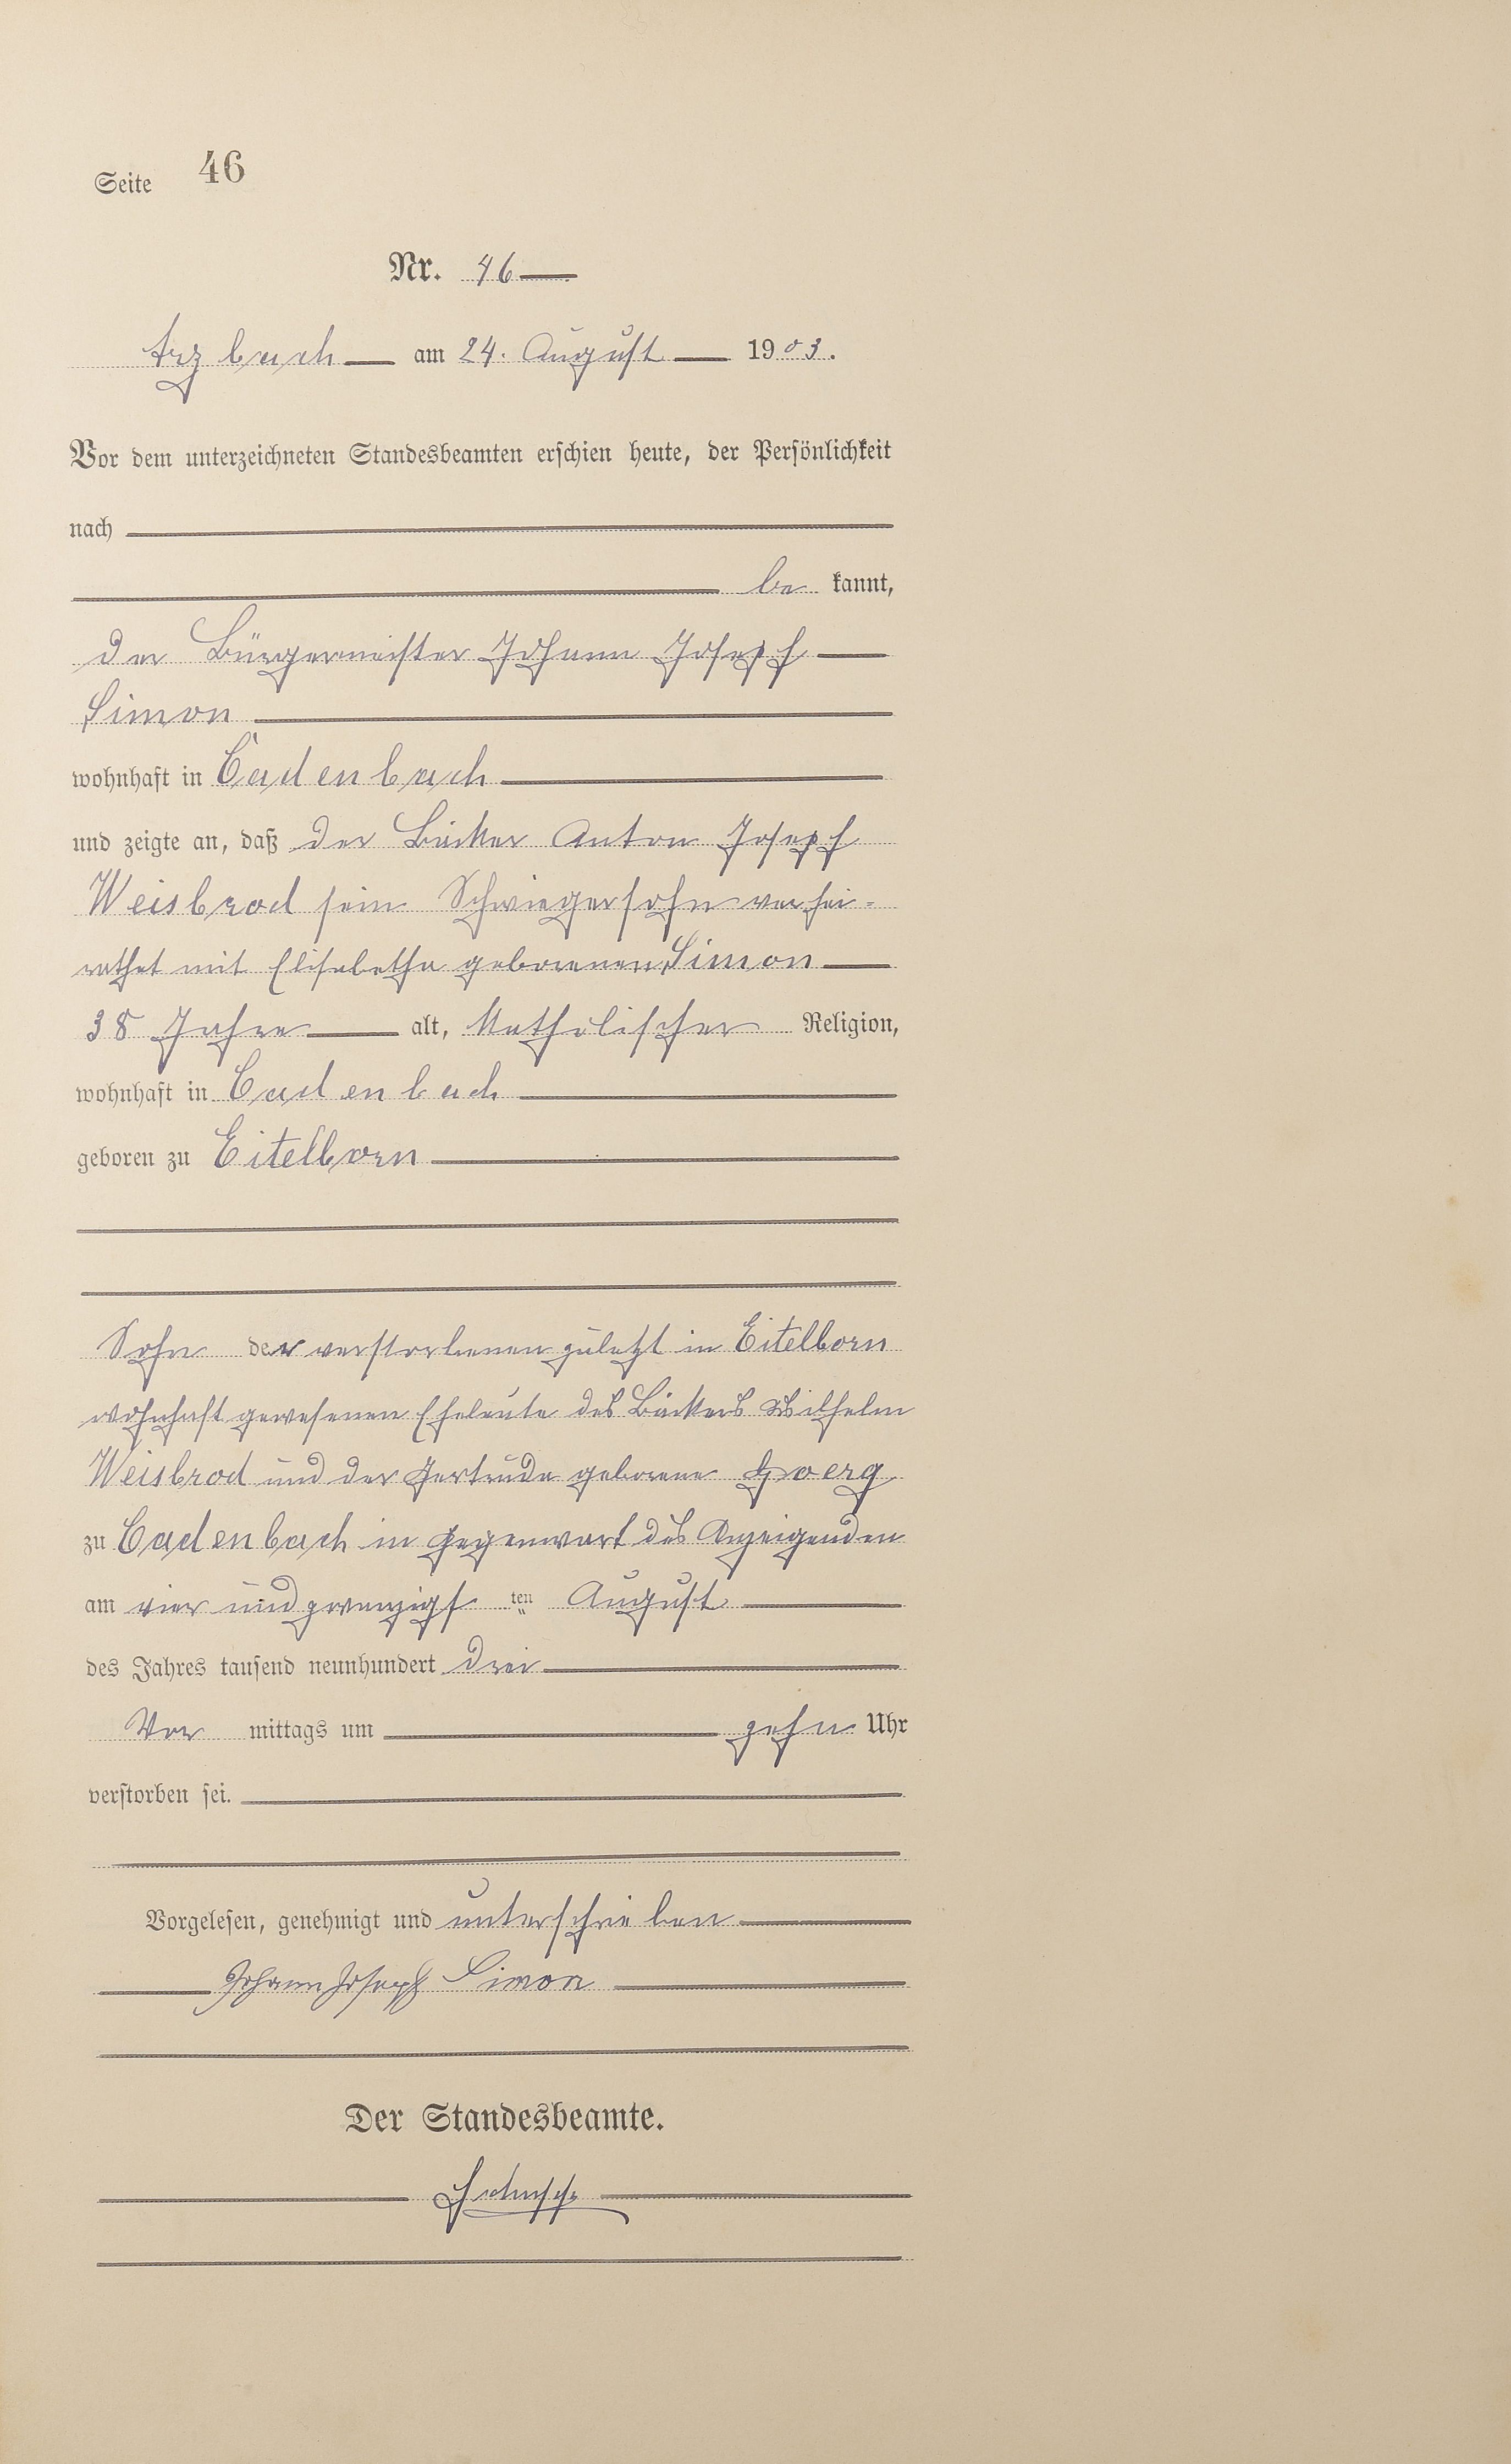 Seite 46
Nr. 46
Arzbach am 24. August 1903.
Vor dem unterzeichneten Standesbeamten erschien heute, der Persönlichkeit
nach
be kannt,
der Bürgermeister Johann Joseph
Simon
wohnhaft in Cadenbach
und zeigte an, daß der Bäcker Anton Joseph
Weisbrod sein Schwiegersohn verhei-
rathet mit Elisabetha geborenen Simon
38 Jahre alt, Katholischer Religion,
wohnhaft in Cadenbach
geboren zu Eitelborn
Sohn der verstorbenen zuletzt in Eitelborn
wohnhaft gewesenen Eheleute des Bäckers Wilhelm
Weisbrod und der Gertrude geborene Goerg
zu Cadenbach in Gegenwart des Anzeigenden
am vier und zwanzigs ten August
des Jahres tausend neunhundert drei
Vor mittags um zehn Uhr
verstorben sei.
Vorgelesen, genehmigt und unterschrieben
Johann Joseph Simon
Der Standesbeamte.